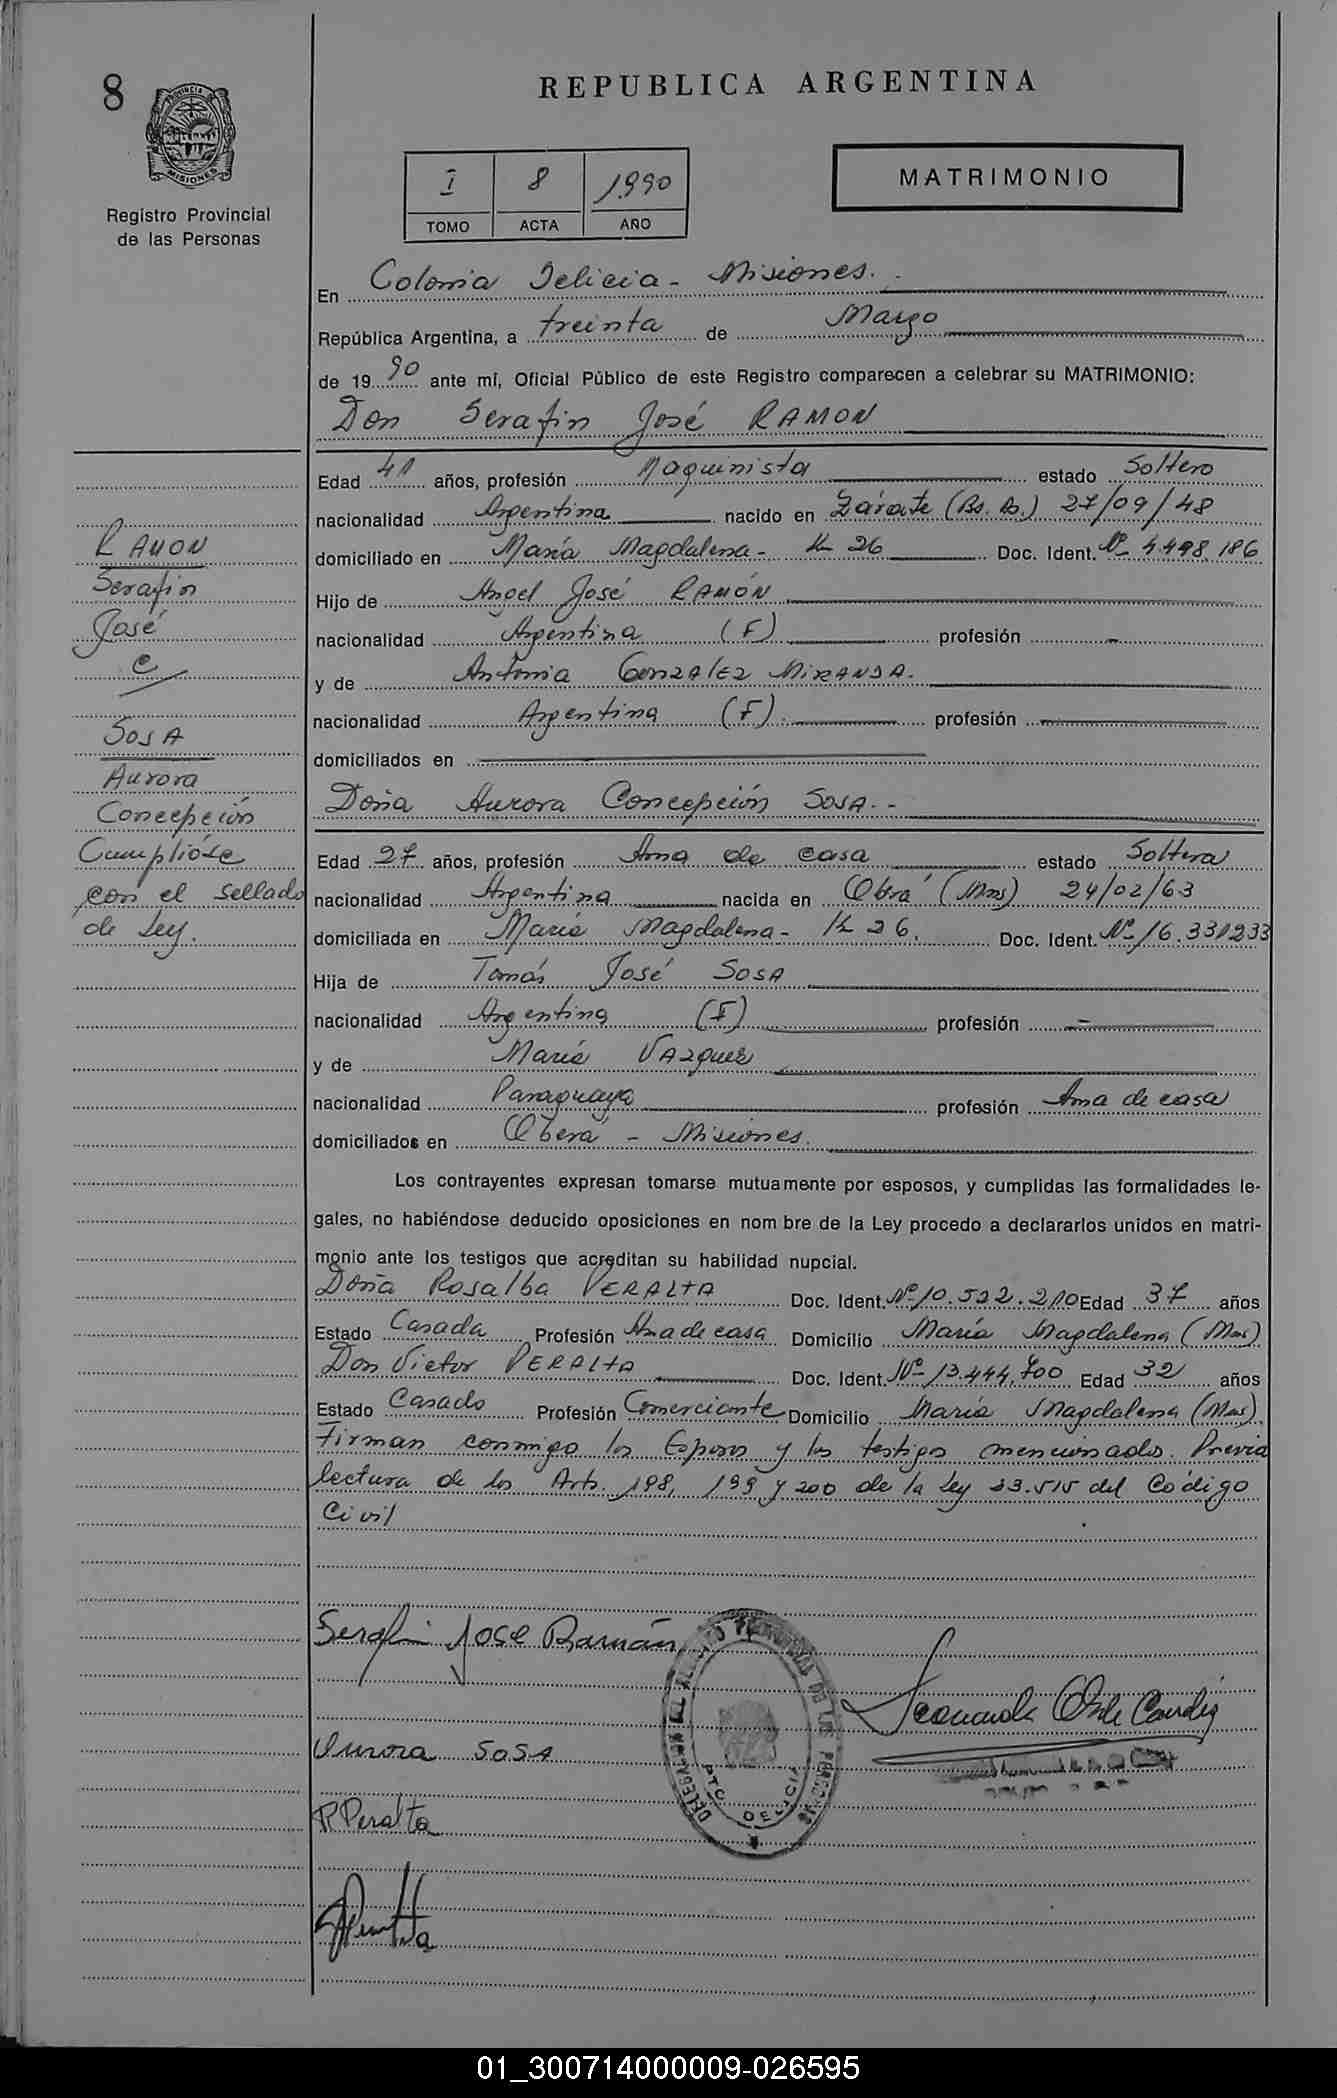 8
REPUBLICA ARGENTINA
PROVINCIA DE
MISIONES
Registro Provincial
de las Personas
I 8 1990
TOMO ACTA AÑO
MATRIMONIO
En Colonia Delicia - Misiones.
República Argentina, a treinta de Marzo
de 1990 ante mí, Oficial Público de este Registro comparecen a celebrar su MATRIMONIO:
Don Serafin José RAMON
Edad 41 años, profesión Maquinista estado Soltero
nacionalidad Argentina nacido en Zárate (Bs. As.) 27/09/48
domiciliado en María Magdalena - K 26 Doc. Ident. Nº 4.498.186
Hijo de Angel José RAMÓN
nacionalidad Argentina (F) profesión -
y de Antonia GonzAlEz MiRANDA.
nacionalidad Argentina (F). profesión
domiciliados en
Doña Aurora Concepción SOSA.-
Edad 27 años, profesión Ama de casa estado Soltera
nacionalidad Argentina nacida en Oberá (Mns) 24/02/63
domiciliada en María Magdalena - K 26. Doc. Ident. Nº 16.331233
Hija de Tomás José SOSA
nacionalidad Argentina (F) profesión -
y de María VAzquez
nacionalidad Paraguaya profesión Ama de casa
domiciliados en Oberá - Misiones.
Los contrayentes expresan tomarse mutuamente por esposos, y cumplidas las formalidades le-
gales, no habiéndose deducido oposiciones en nom bre de la Ley procedo a declararlos unidos en matri-
monio ante los testigos que acreditan su habilidad nupcial.
Doña Rosalba PERALTA Doc. Ident. Nº 10.522.210 Edad 37 años
Estado Casada Profesión Ama de casa Domicilio María Magdalena (Mns)
Don Victor PERALTA Doc. Ident. Nº 13.444.700 Edad 32 años
Estado Casado Profesión Comerciante Domicilio María Magdalena (Mns).
Firman conmigo los Esposos y los testigos mencionados. Previa
lectura de los Arts. 198, 199 y 200 de la Ley 23.515 del Código
Civil
RAMON
Serafin
José
C/
SOSA
Aurora
Concepción
Cumplióse
con el sellado
de Ley.
Serafin Jose Ramón
Aurora SOSA
R Peralta
PTO DELICIA
01_300714000009-026595